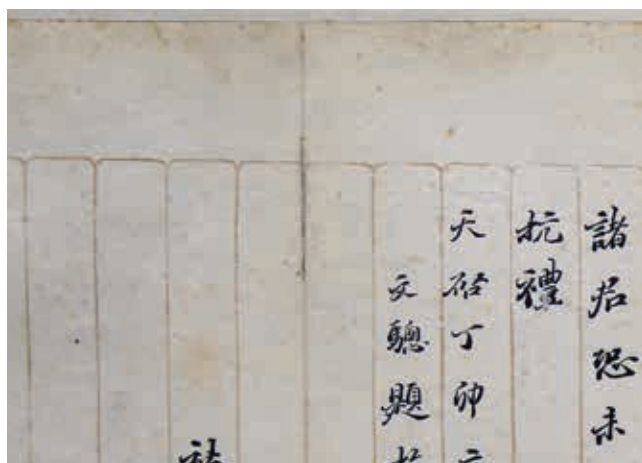 諸君恐未
抗禮
天啓丁卯
文驄題於